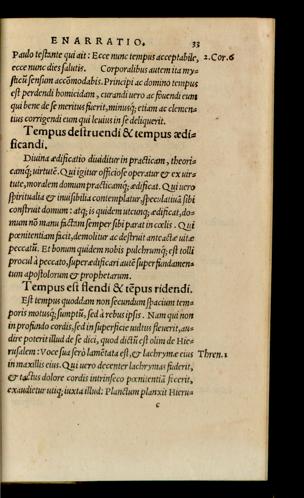 ENARRATIO. 33
Paulo testante qui ait: Ecce nunc tempus acceptabile, 2.Cor.6
ecce nunc dies salutis. Corporalibus autem ita my-
sticũ sensum accõmodabis. Principi ac domino tempus
est perdendi homicidam, curandi uero ac fouendi eum
qui bene de se meritus fuerit, minusq; etiam ac clemen-
tius corrigendi eum qui leuius in se deliquerit.
Tempus destruendi & tempus ædi-
ficandi.
Diuina ædificatio diuiditur in practicam, theori-
camq; uirtutẽ. Qui igitur officiose operatur & ex uir-
tute, moralem domum practicamq; ædificat. Qui uero
spiritualia & inuisibilia contemplatur, speculatiuã sibi
construit domum: atq; is quidem utcunq; ædificat, do-
mum nõ manu factam semper sibi parat in cœlis. Qui
pœnitentiam facit, demolitur ac destruit anteactæ uitæ
peccatũ. Et bonum quidem nobis pulchrumq; est tolli
procul à peccato, superædificari autẽ super fundamen-
tum apostolorum & prophetarum.
Tempus est flendi & tẽpus ridendi.
Est tempus quoddam non secundum spacium tem-
poris motusq; sumptũ, sed à rebus ipsis. Nam qui non
in profundo cordis, sed in superficie uultus fleuerit, au-
dire poterit illud de se dici, quod dictũ est olim de Hie-
rusalem: Voce sua serò lamẽtata est, & lachrymæ eius Thren.1
in maxillis eius. Qui uero decenter lachrymas fuderit,
& tactus dolore cordis intrinseco pœnitentiã fecerit,
exaudietur utiq; iuxta illud: Planctum planxit Hieru-
c